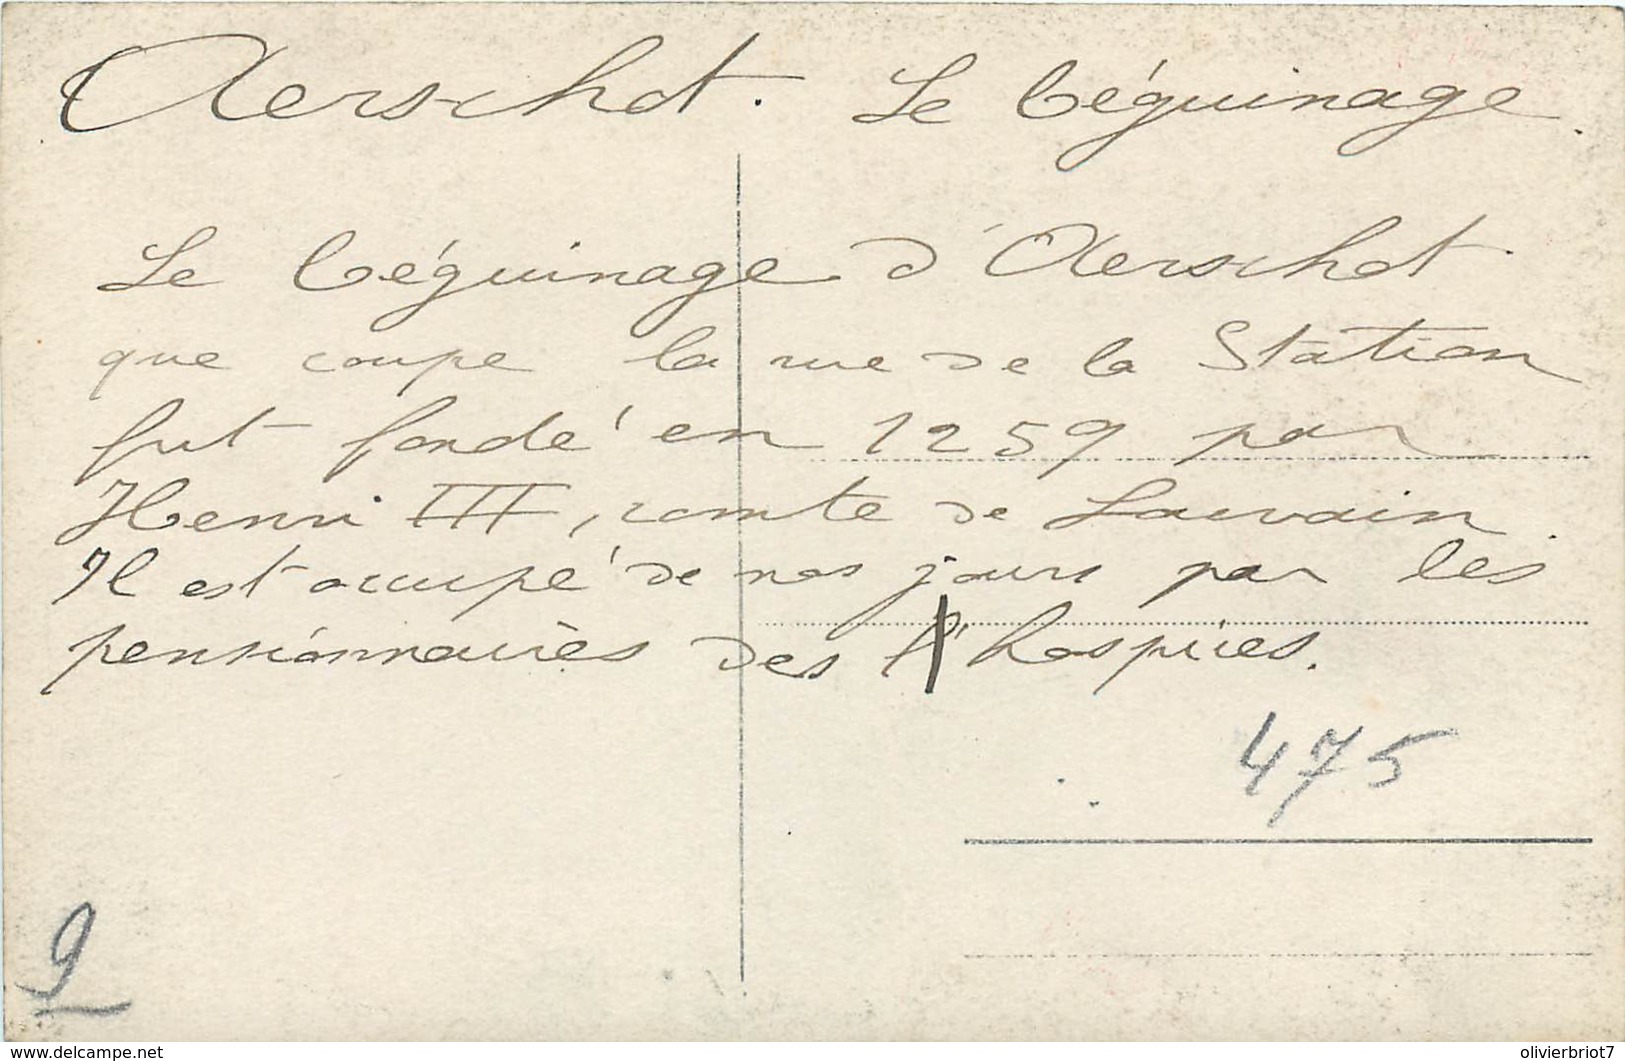 Aerschot. Le béguinage.
Le béguinage d'Aerschot
que coupe la rue de la Station
fut fondé en 1259 par
Henri III, comte de Louvain.
Il est occupé de nos jours par les
pensionnaires des l'hospices.
475
9
www.delcampe.net
olivierbriot7